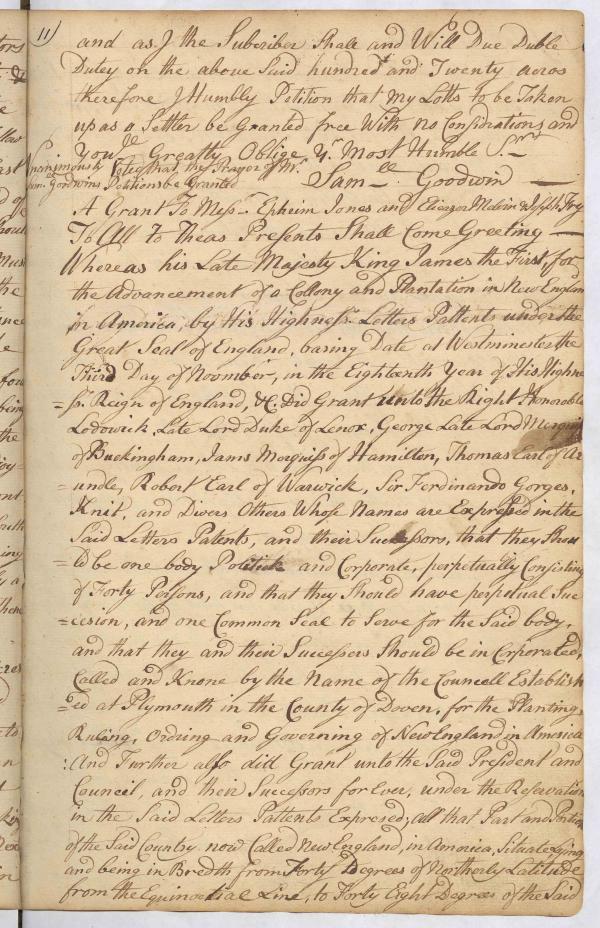 11)
and as I the Subcriber Shall and Will Due Duble
Dutey on the above Said hundred and Twenty acros
therefore I Humbly Petition that my Lotts to be Taken
up as a Settler be Granted free With no Considrations and
You'le Greatly Oblige Yr. Most Humble Srt.
Voted that the Prayer of Mr.
Saml. Goodwins Petitions be Granted
Samll. Goodwin
A Grant To Messrs. Epheim Jones and Eliezer Melvin & Josiah Fry
To All To theas Presents Shall Come Greeting
Whereas his Late Majesty King James the First, for
the Advancement of a Collony and Plantation in New England
in America, by His Highness. Letters Pattents under the
Great Seal of England, baring Date at Westminester the
Third Day of Noomber, in the Eighteenth Year of His Highne
=ss. Reign of England, &C. Did Grant unto the Right Honorable
Lodowick, Late Lord Duke of Lenox, George Late Lord Merquis
of Buckingham, Jams Morquiss of Hamilton, Thomas Earl of Ar
=undle, Robert Earl of Warwick, Sir Ferdinando Gorges,
Knit, and Divers Others Whose Names are Expressed in the
Said Letters Patents, and their Successors, that they Shou
=ld be one body Politick and Corporate, perpetually Consisting
of Forty Persons, and that they Should have perpetual Suc
=cesion, and one Common Seal to Serve for the Said body,
and that they and their Successers Should be in Corporated,
Called and Knone by the Name of the Councell Establish
=ed at Plymouth in the County of Doven, for the Planting
Ruling, Ordring and Governing of New England in America
:And Further also did Grant unto the Said President and
Council, and their Successors for Ever, under the Reservation
in the Said Letters Pattents Expresed, all that Part and Portion
of the Said Country now Called New England, in America, Situate Lying
and being in Bredth from Forty Degrees of Northerly Latitude
from the Equinoctial Line, to Forty Eight Degrees of the Said